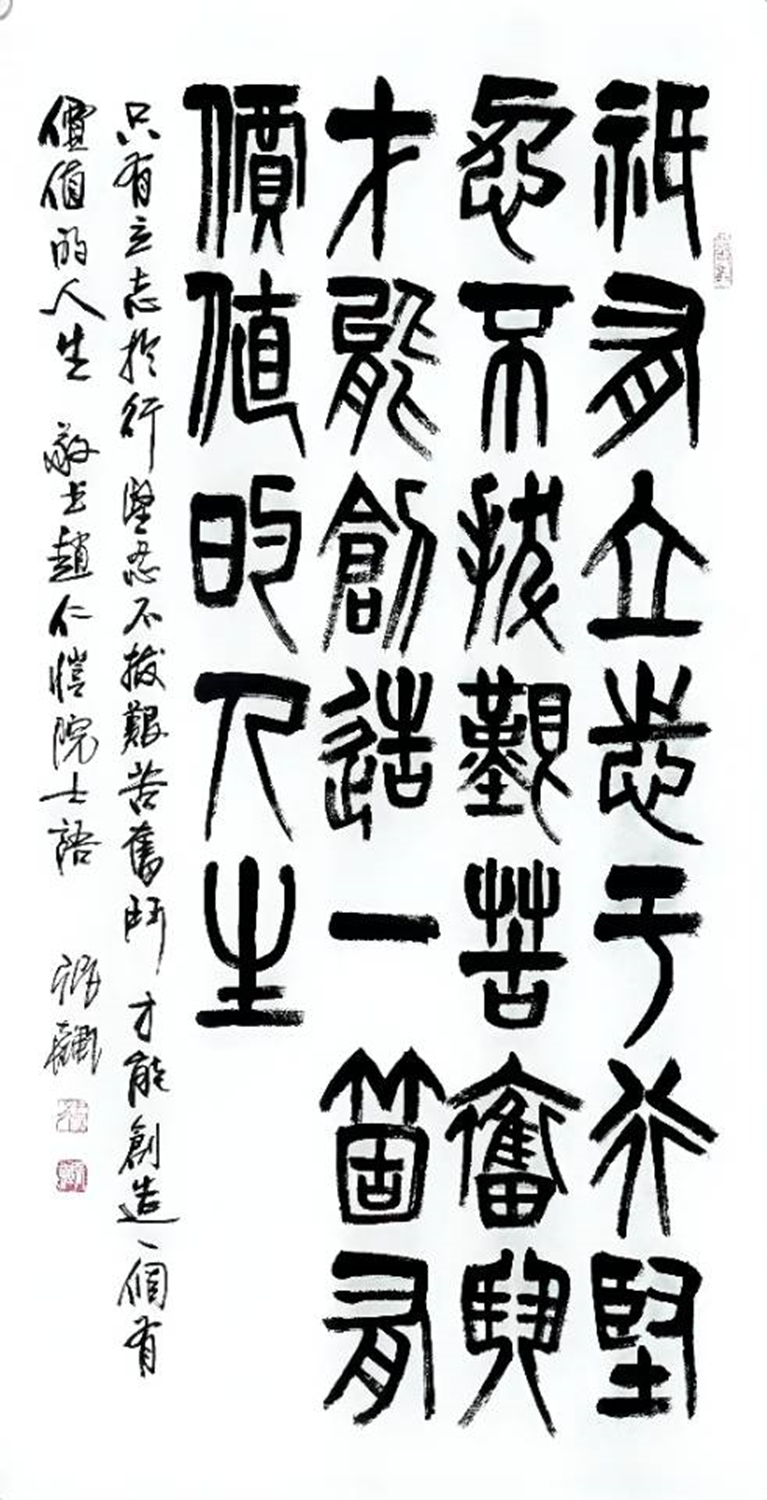 祇有立志于行堅
忍不拔艱苦奮鬥
才能創造一箇有
價值的人生
只有立志於行堅忍不拔艱苦奮鬥才能創造一個有
價值的人生 敬书趙仁愷院士語